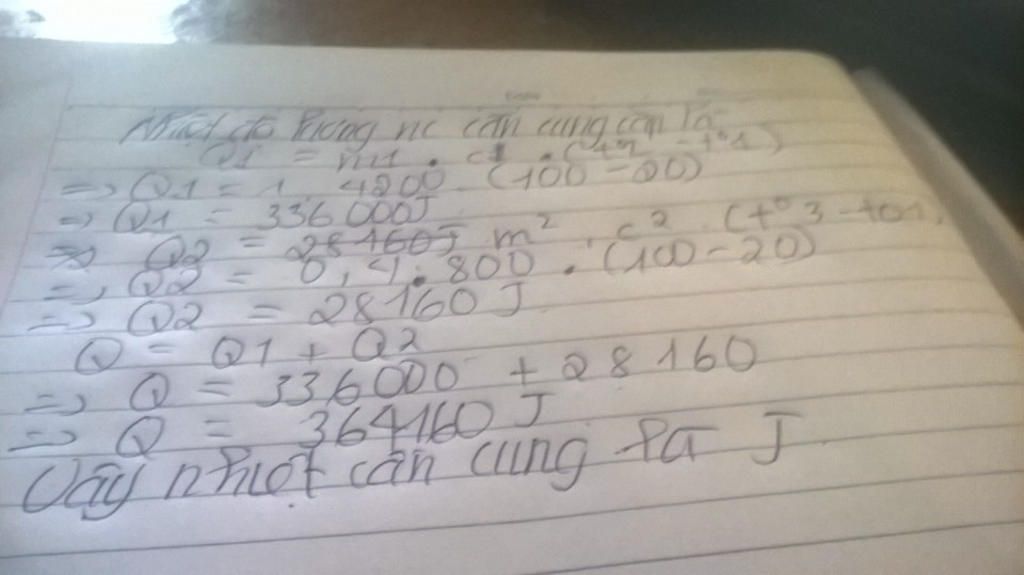 Nhiệt độ lượng nc cần cung cấp là
Q1 = m1 . c1 . (t°2 - t°1)
=> Q1 = 1 . 4200 . (100 - 20)
=> Q1 = 336000J
=> Q2 = 28160J m² . c² . (t°3 - t01)
=> Q2 = 0,4 . 800 . (100 - 20)
=> Q2 = 28160 J
Q = Q1 + Q2
=> Q = 336000 + 28160
=> Q = 364160 J
Vậy nhiệt cần cung là J